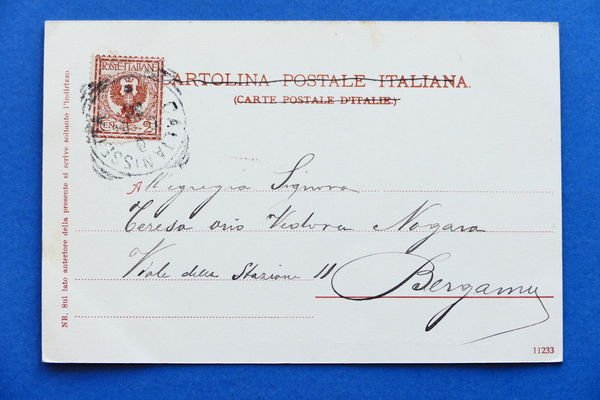 POSTE·ITALIANE
CENT. 2
CALTANISSETTA
CARTOLINA POSTALE ITALIANA.
(CARTE POSTALE D'ITALIE.)
NB. Sul lato anteriore della presente si scrive soltanto l'indirizzo.
All'egregia Signora
Teresa Vedova Nogara
Viale della Stazione 11
Bergamo
11233